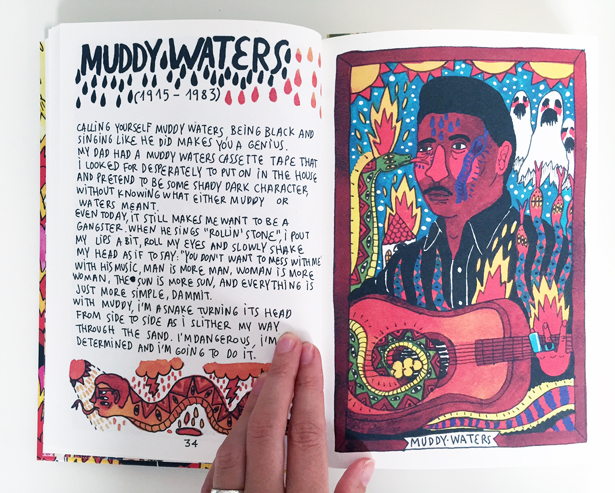 MUDDY WATERS
(1915 - 1983)
CALLING YOURSELF MUDDY WATERS, BEING BLACK AND
SINGING LIKE HE DID MAKES YOU A GENIUS.
MY DAD HAD A MUDDY WATERS CASSETTE TAPE THAT
I LOOKED FOR DESPERATELY TO PUT ON IN THE HOUSE
AND PRETEND TO BE SOME SHADY DARK CHARACTER,
WITHOUT KNOWING WHAT EITHER MUDDY OR
WATERS MEANT.
EVEN TODAY, IT STILL MAKES ME WANT TO BE A
GANGSTER. WHEN HE SINGS "ROLLIN' STONE", I POUT
MY LIPS A BIT, ROLL MY EYES AND SLOWLY SHAKE
MY HEAD AS IF TO SAY: "YOU DON'T WANT TO MESS WITH ME
WITH HIS MUSIC, MAN IS MORE MAN, WOMAN IS MORE
WOMAN, THE SUN IS MORE SUN, AND EVERYTHING IS
JUST MORE SIMPLE, DAMMIT.
WITH MUDDY, I'M A SNAKE TURNING ITS HEAD
FROM SIDE TO SIDE AS I SLITHER MY WAY
THROUGH THE SAND. I'M DANGEROUS, I'M
DETERMINED AND I'M GOING TO DO IT.
34
MUDDY·WATERS